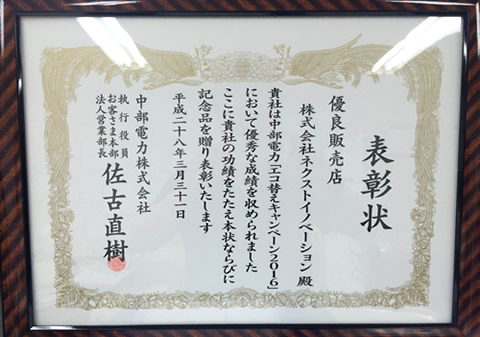 表彰状
優良販売店
株式会社ネクストイノベーション 殿
貴社は中部電力「エコ替えキャンペーン2016」
において優秀な成績を収められました
ここに貴社の功績をたたえ本状ならびに
記念品を贈り表彰いたします
平成二十八年三月三十一日
中部電力株式会社
執行役員
お客さま本部
法人営業部長
佐古直樹